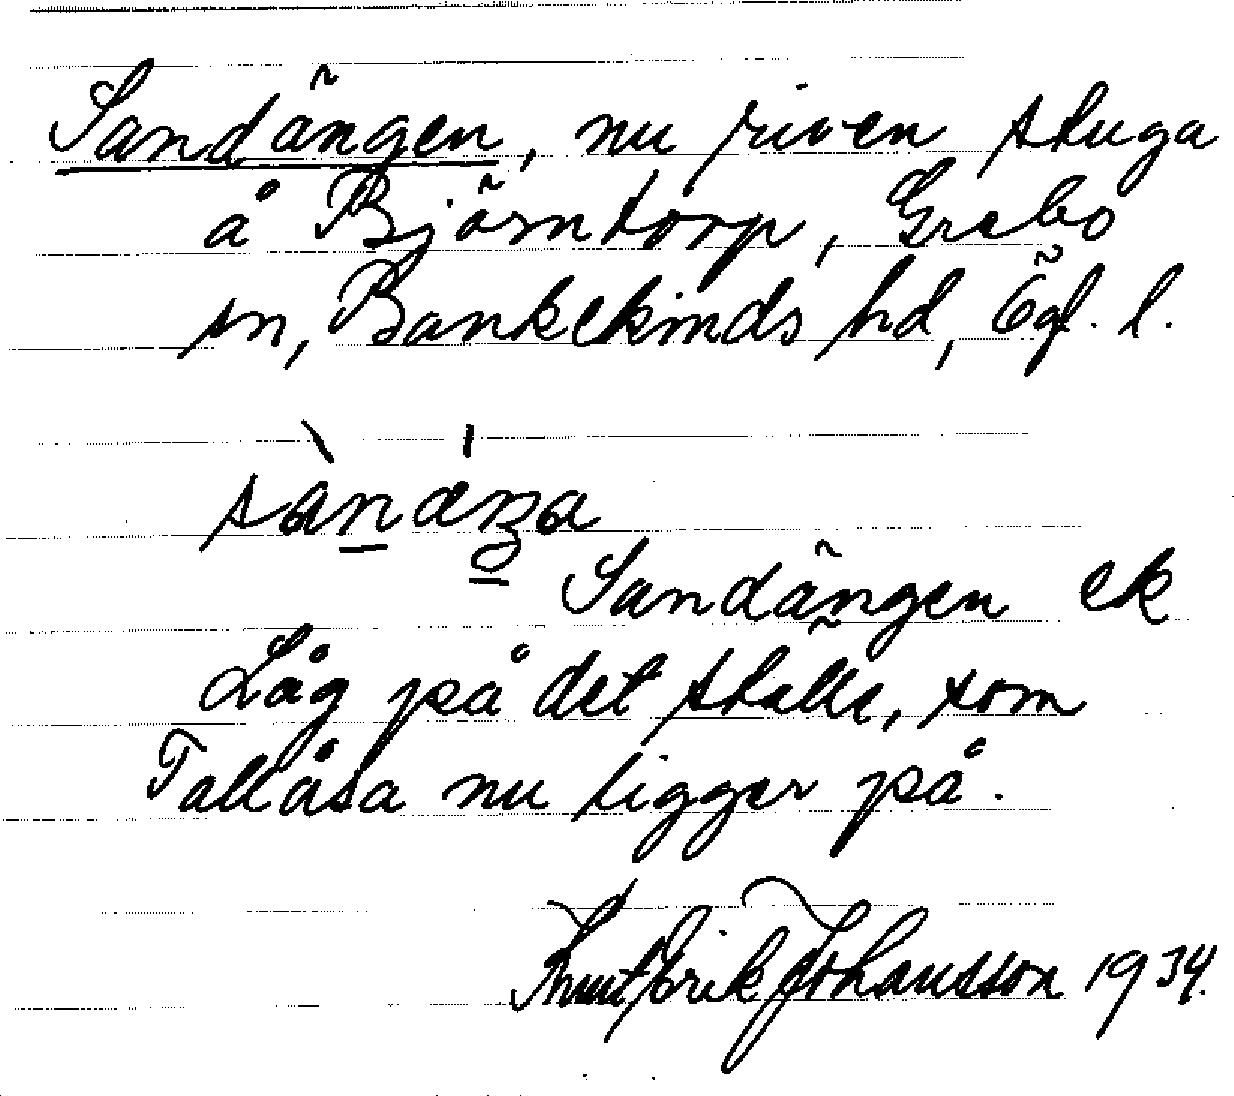 Sandängen, nu riven stuga
å Björntorp, Grebo
sn, Bankekinds hd, Ögl. l.
Sandängen ek
Låg på det ställe, som
Tallåsa nu ligger på.
Knut Erik Johansson 1934.